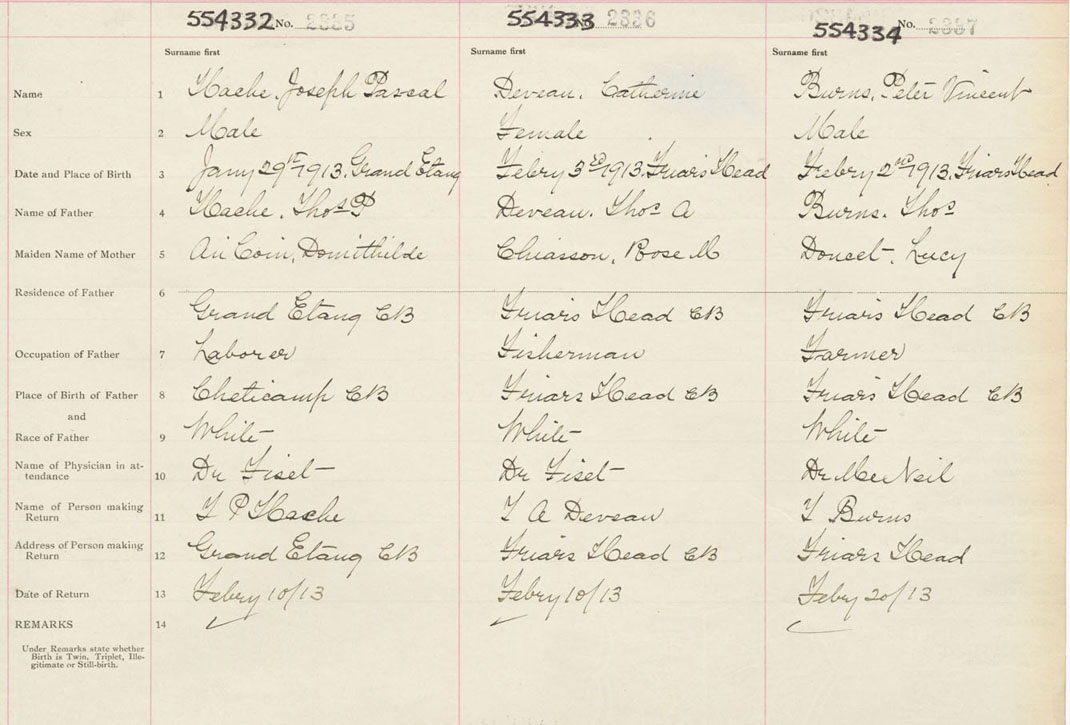 554332 No. 2335 554333 No. 2336 554334 No. 2337
Surname first Surname first Surname first
Name 1 Hache, Joseph Pascal Deveau. Catherine Burns, Peter Vincent
Sex 2 Male Female Male
Date and Place of Birth 3 Jany 29th 1913. Grand Etang Febry 3rd 1913. Friars Head Febry 2nd 1913. Friars Head
Name of Father 4 Hache, Thos P Deveau. Thos A Burns. Thos
Maiden Name of Mother 5 Au Coin, Domithilde Chiasson, Rose M Doucet, Lucy
Residence of Father 6
Grand Etang CB Friars Head CB Friars Head CB
Occupation of Father 7 Laborer Fisherman Farmer
Place of Birth of Father 8 Cheticamp CB Friars Head CB Friars Head CB
and
Race of Father 9 White White White
Name of Physician in at-
tendance 10 Dr Fiset Dr Fiset Dr MacNeil
Name of Person making
Return 11 T P Hache T A Deveau T Burns
Address of Person making
Return 12 Grand Etang CB Friars Head CB Friars Head
Date of Return 13 Febry 10/13 Febry 10/13 Feby 20/13
REMARKS 14
Under Remarks state whether
Birth is Twin, Triplet, Ille-
gitimate or Still-birth.